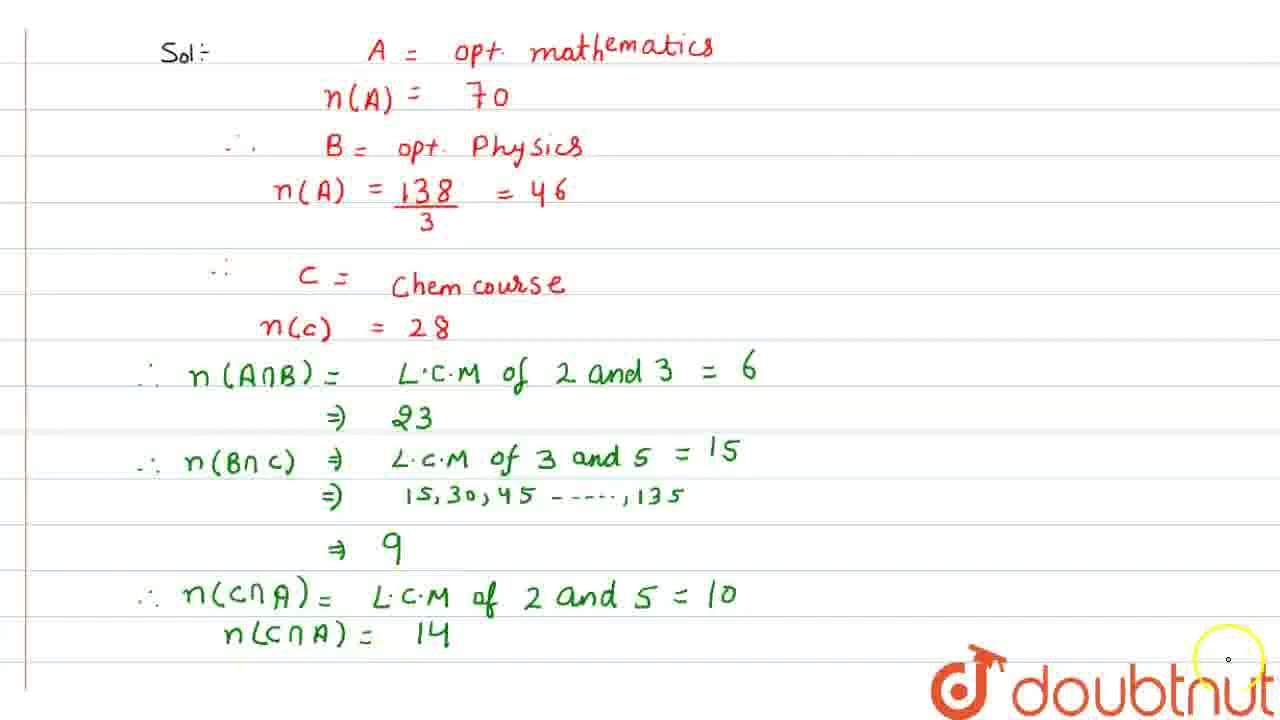 Sol:- A = opt. mathematics
n(A) = 70
∴ B = opt. Physics
n(A) = 138/3 = 46
∴ C = Chem course
n(c) = 28
∴ n(A∩B) = L.C.M of 2 and 3 = 6
⇒ 23
∴ n(B∩C) ⇒ L.C.M of 3 and 5 = 15
⇒ 15, 30, 45 -----, 135
⇒ 9
∴ n(C∩A) = L.C.M of 2 and 5 = 10
n(C∩A) = 14
doubtnut